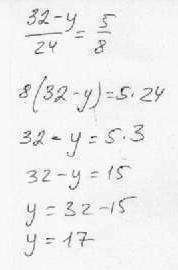 (32-y)/24 = 5/8
8(32-y)=5·24
32-y=5·3
32-y=15
y=32-15
y=17